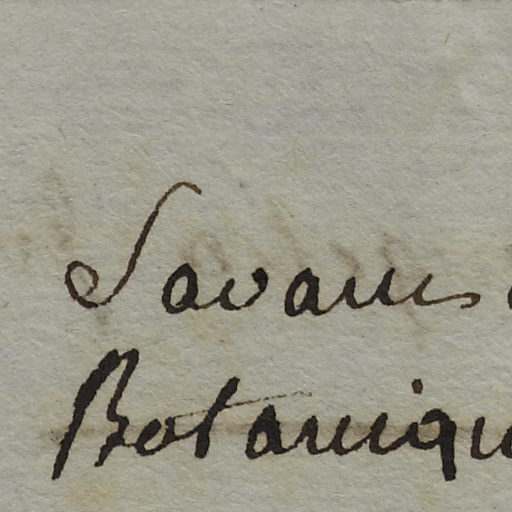 Savans
Botaniqu